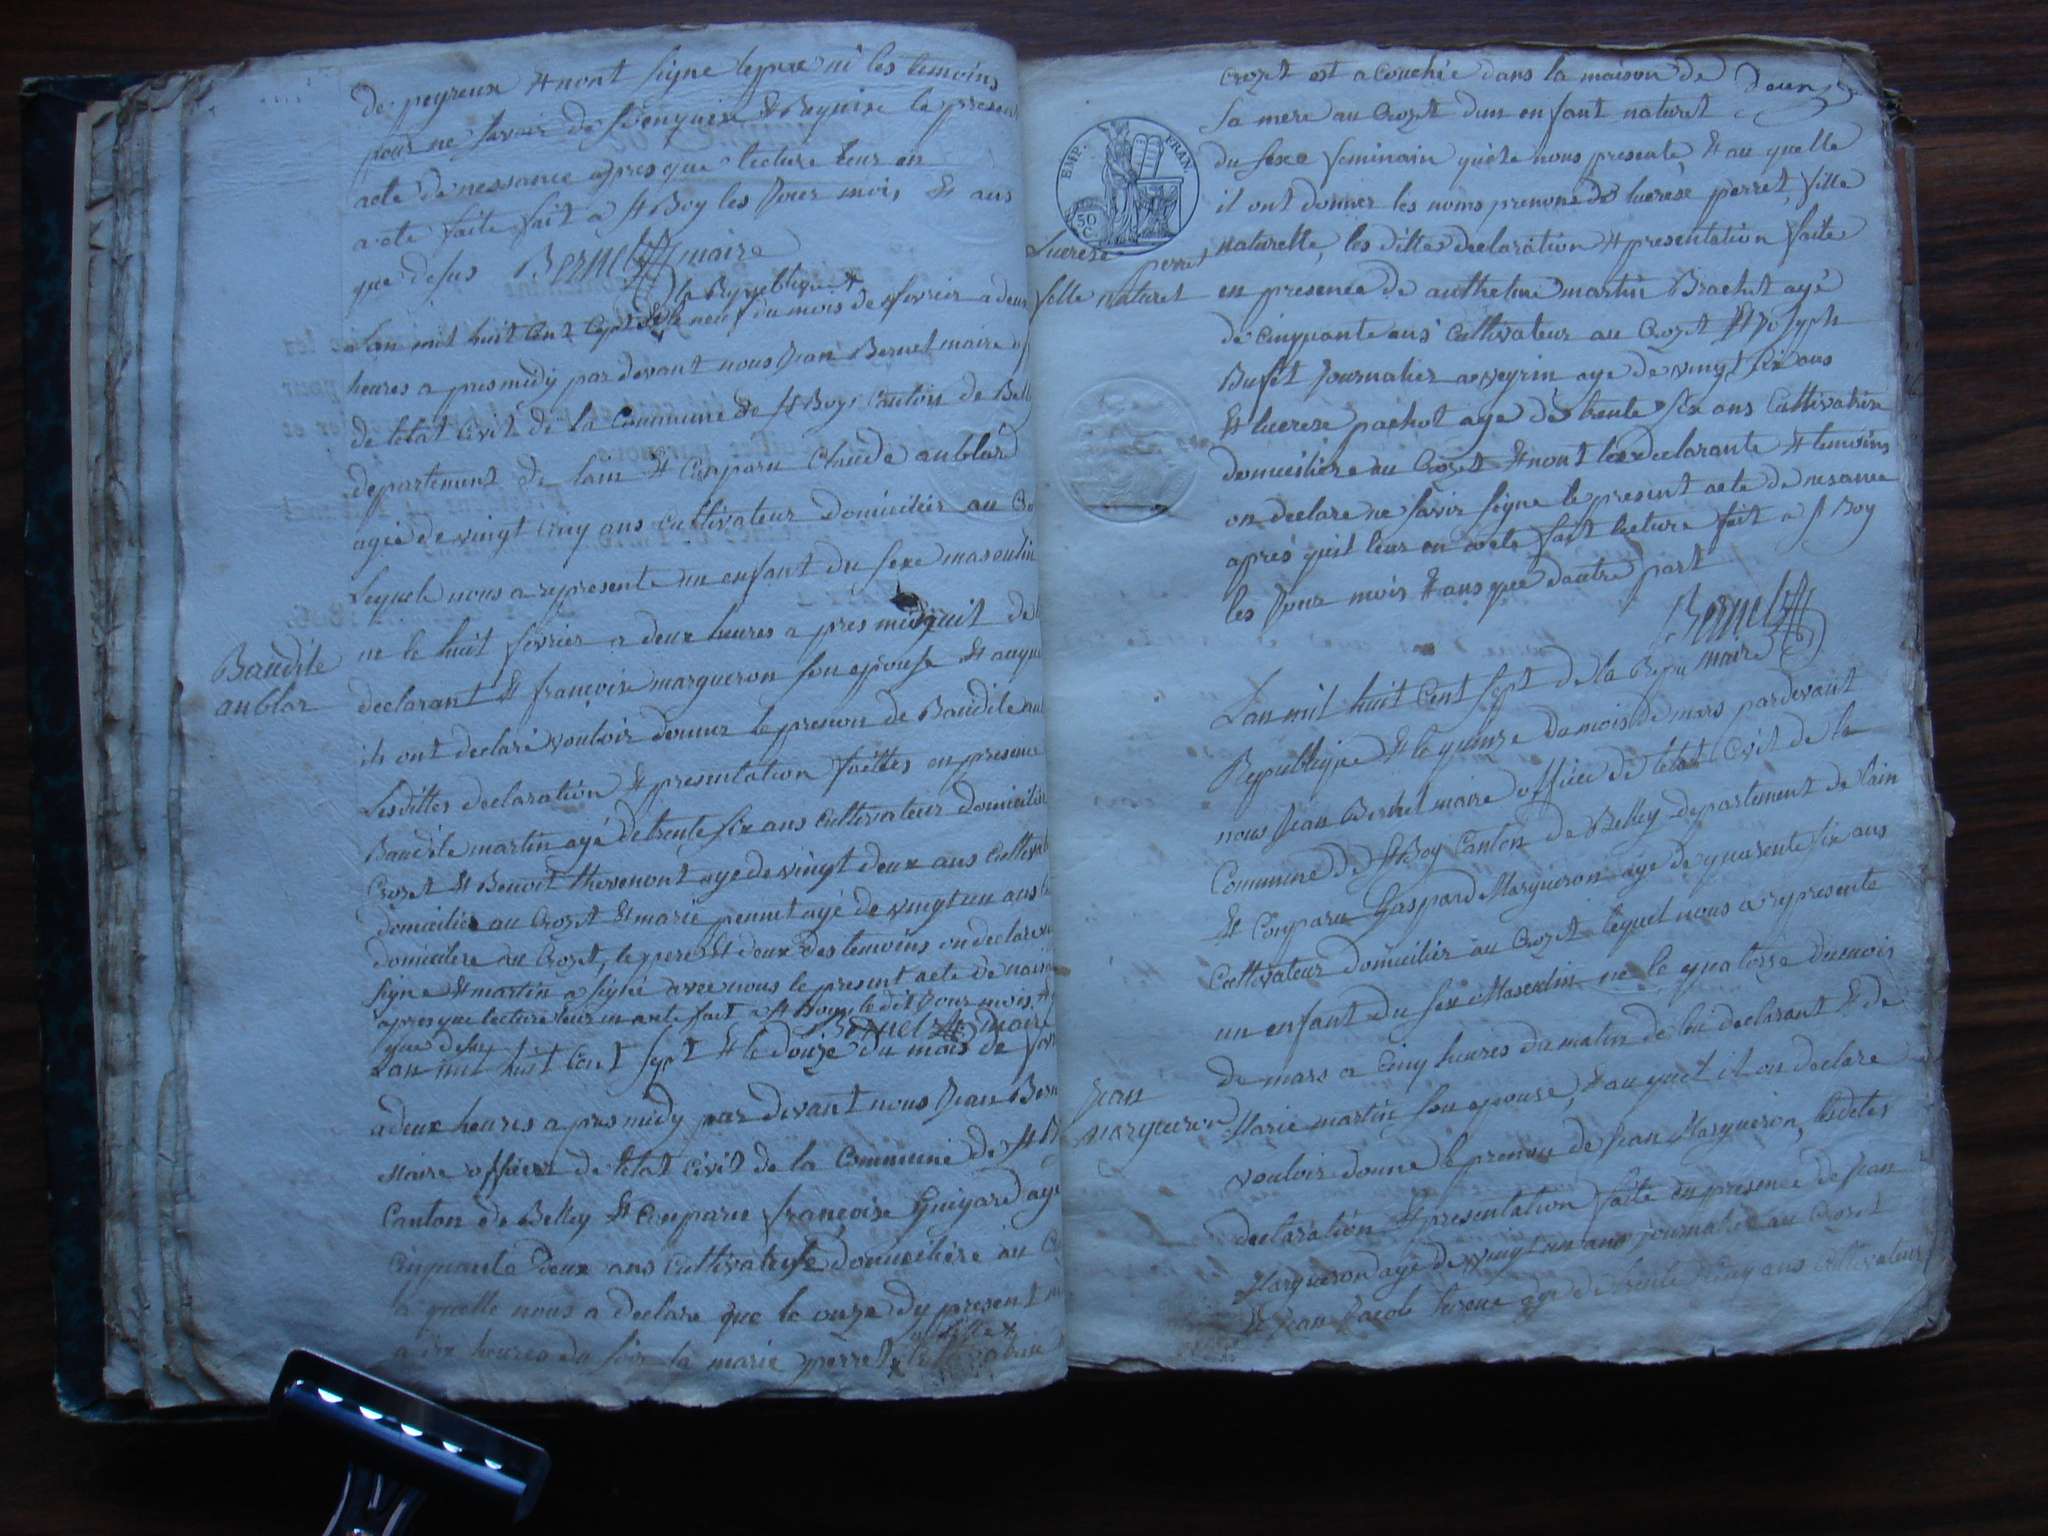 de peyreux & nont signe lepere ni les temoins
pour ne savoir de senquis & Requise le present
acte de nessance apres que lecture leur en
a ete faite fait a St Boy les Jour mois & ans
que desus Bernel maire
de la Republique &
Lan mil huit Cent Cept le neuf du mois de fevrier a deux
heures a pres midy par devant nous Jean Bernel maire
de letat Civil de la Commune de St Boys Canton de Bell
departement de lain & Conparu Claude anblard
agie de vingt Cinq ans cultivateur domicilier au Cro
Lequele nous a represente un enfant du sexe masculin
ne le huit fevrier a deux heures a pres midy de
Baudile
anblar
declarant & françoise margueron son epouse & auque
ils ont declaré vouloir donner le prenom de Baudile
Lesdittes declaration & presentation faittes en presence
Baudile martin agé de trente six ans cultivateur domicilie
Crozet & Benoit thevenont age de vingt deux ans Cultivat
domicilier au Crozet & marie pernet agé de vingt un ans
domiciliere au Crozet, le pere & deux des temoins on declare
signe & martin a signé avec nous le present acte de nais
apres que lecture leur en a ete fait a St Boy le dit Jour mois &
que desus Bernel maire
Lan mil huit Cent sept & le douze du mois de fevr
a deux heures a pres midy par devant nous Jean Bern
Maire officier de letat Civil de la Commune de St B
Canton de Belley & Conparu françoise Guigard age
Cinquante deux ans cultivateuse domiciliere au C
a quelle nous a declare que le onze dy present
a dix heures du soir la marie perret
sa fille
Crozet est acouchée dans la maison de
sa mere au Crozet dun enfant naturel
du sexe feminain quele nous presente & au quelle
il ont donner les noms prenoms de lucrese perret, fille
naturelle, les ditte declaration & presentation faite
Lucrese perret
felle naturel
EMP. FRAN.
50 C.
en presence de anthelme martin Brachet agé
de Cinquante ans Cultivateur au Crozet & Joseph
Bufet Journalier a veyrin age de vingt six ans
& lucrese pachot age de trente six ans Cultivatrise
domiciliere au Crozet & nont la declarante & temoins
on declare ne savoir signe le present acte de nesance
aprés quil leur en a ete fait lecture fait a St Boy
les Jour mois & ans que dautre part
Bernel
maire
Lan mil huit Cent sept de la Repu
Republique & le quinze du mois de mars pardevant
nous Jean Bernel maire officier de letat Civil de la
Commune de St Boy Canton de Belley departement de lain
& Conparu Gaspard Margueron age de quarente six ans
Cultivateur domicilier au Crozet lequel nous a represente
un enfant du sexe Masculin ne le quatorze du mois
de mars a Cinq heures du matin de lui declarant & de
Jean
margueron
Marie martin son epouse, & au quel il on declare
vouloir donne le prenom de Jean Margueron, ledites
declaration & presentation faite en presence de Jean
Margueron age de vingt un ans journalier au Crozet
& Jean Jacob age de trente Cinq ans Cultivateur